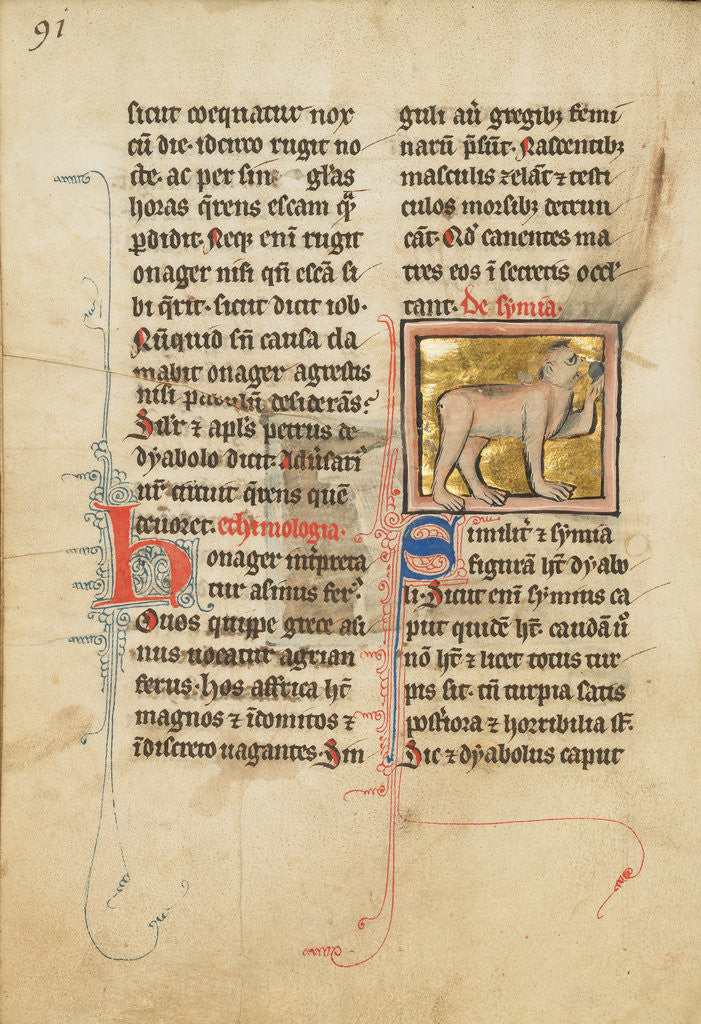 91
sicut coequatur nox
cū die· idcirco rugit no
cte· ac per sin glās
horas q̄rens escam qͣ
ꝑdidit· Neqꝫ enī rugit
onager nisi qn̄ escā si
bi q̄rit· sicut dicit iob·
Nūquid sn̄ causa cla
mabit onager agrestis
nisi pabulū desiderās?
Silr̄ ⁊ apl̄s petrus de
dyabolo dicit· Adūsari
ur̄ circuit q̄rens quē
deuoret· ethimologia·
honager int̄preta
tur asinus fer?
Ouos quippe grece asi
nus uocatur agrian
ferus· hos affrica hn̄t
magnos ⁊ īdomitos ⁊
īdiscreto uagantes· Sin
guli aūt gregibꝫ femi
narū p̄sūt· Nascentibꝫ
masculis zelāt ⁊ testi
culos morsibꝫ detrun
cāt· Qd̄ cauentes ma
tres eos ī secretis occul
tant· De symia·
Similit̄ ⁊ symia
figurā ht̄ dyabo
li· Sicut enī symius ca
put quidē ht̄· caudā u͛o
nō ht̄ ⁊ licet totus tur
pis sit· tn̄ turpia satis
post̄iora ⁊ horribilia st̄·
Sic ⁊ dyabolus caput